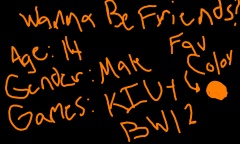 Wanna Be Friends?
Age: 14
Gender: Male
Games: KIU4
BW12
Fav
Color